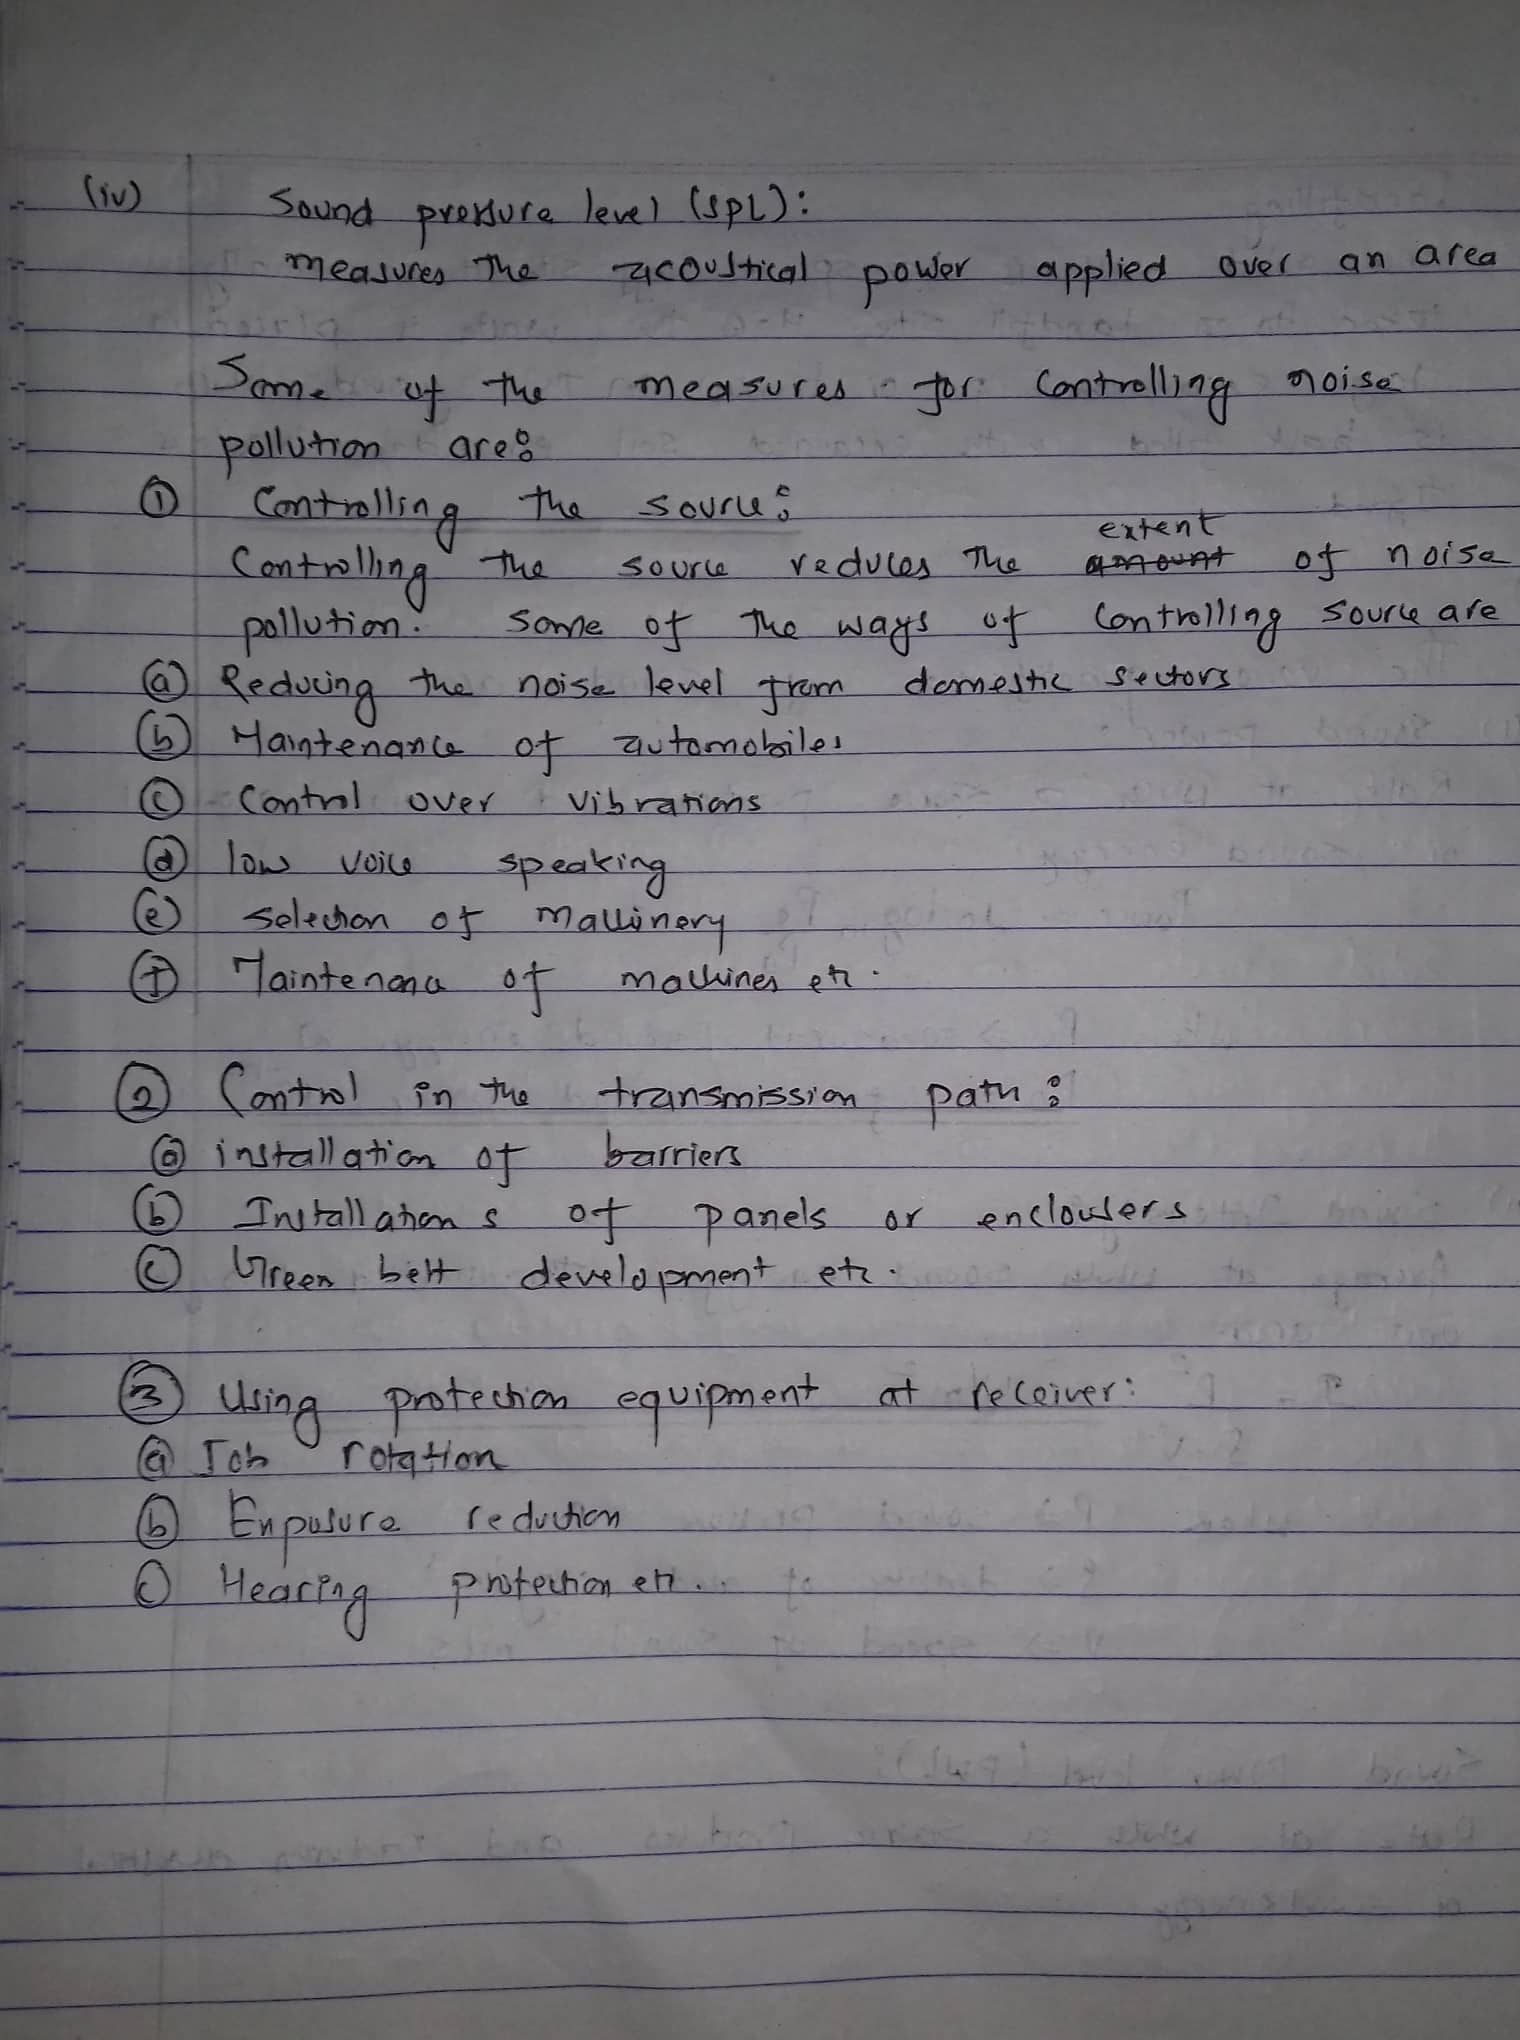 (iv) Sound pressure level (SPL):
measures the acoustical power applied over an area
Some of the measures for controlling noise
pollution are:
① Controlling the source:
extent
Controlling the source reduces the amount of noise
pollution. Some of the ways of controlling source are
ⓐ Reducing the noise level from domestic sectors
ⓑ Maintenance of automobiles
ⓒ Control over vibrations
ⓓ low voice speaking
ⓔ selection of machinery
ⓕ Maintenance of machines etc.
② Control in the transmission path:
ⓐ installation of barriers
ⓑ Installations of panels or enclousers
ⓒ Green belt development etc.
③ Using protection equipment at receiver:
ⓐ Job rotation
ⓑ Exposure reduction
ⓒ Hearing protection etc..